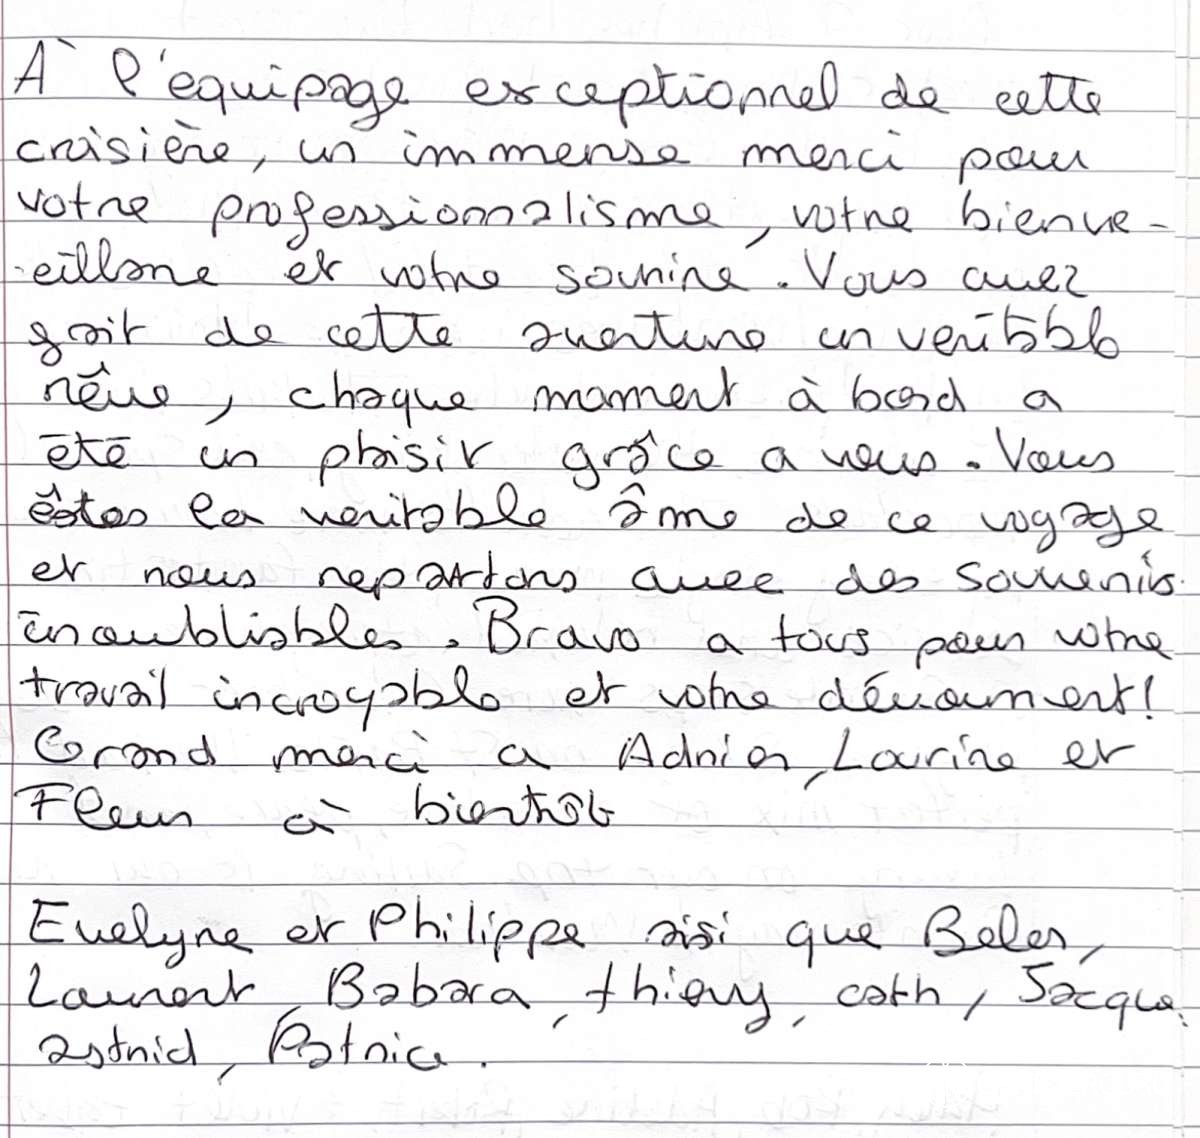 À l'equipage exceptionnel de cette
croisière, un immense merci pour
votre professionnalisme, votre bienve-
eillane et votre sourire. Vous avez
fait de cette aventure un veritable
rêve, chaque moment à bord a
été un plaisir grâce a vous. Vous
êtes la veritable âme de ce voyage
et nous repartons avec des souvenirs
inoubliables. Bravo a tous pour votre
travail incroyable et votre dévoument!
Grand merci a Adrien, Laurine et
Fleur à bientôt
Evelyne et Philippe aisi que Belen,
Laurent, Babara, thierry, cath, Jacque,
astrid, Patrice.